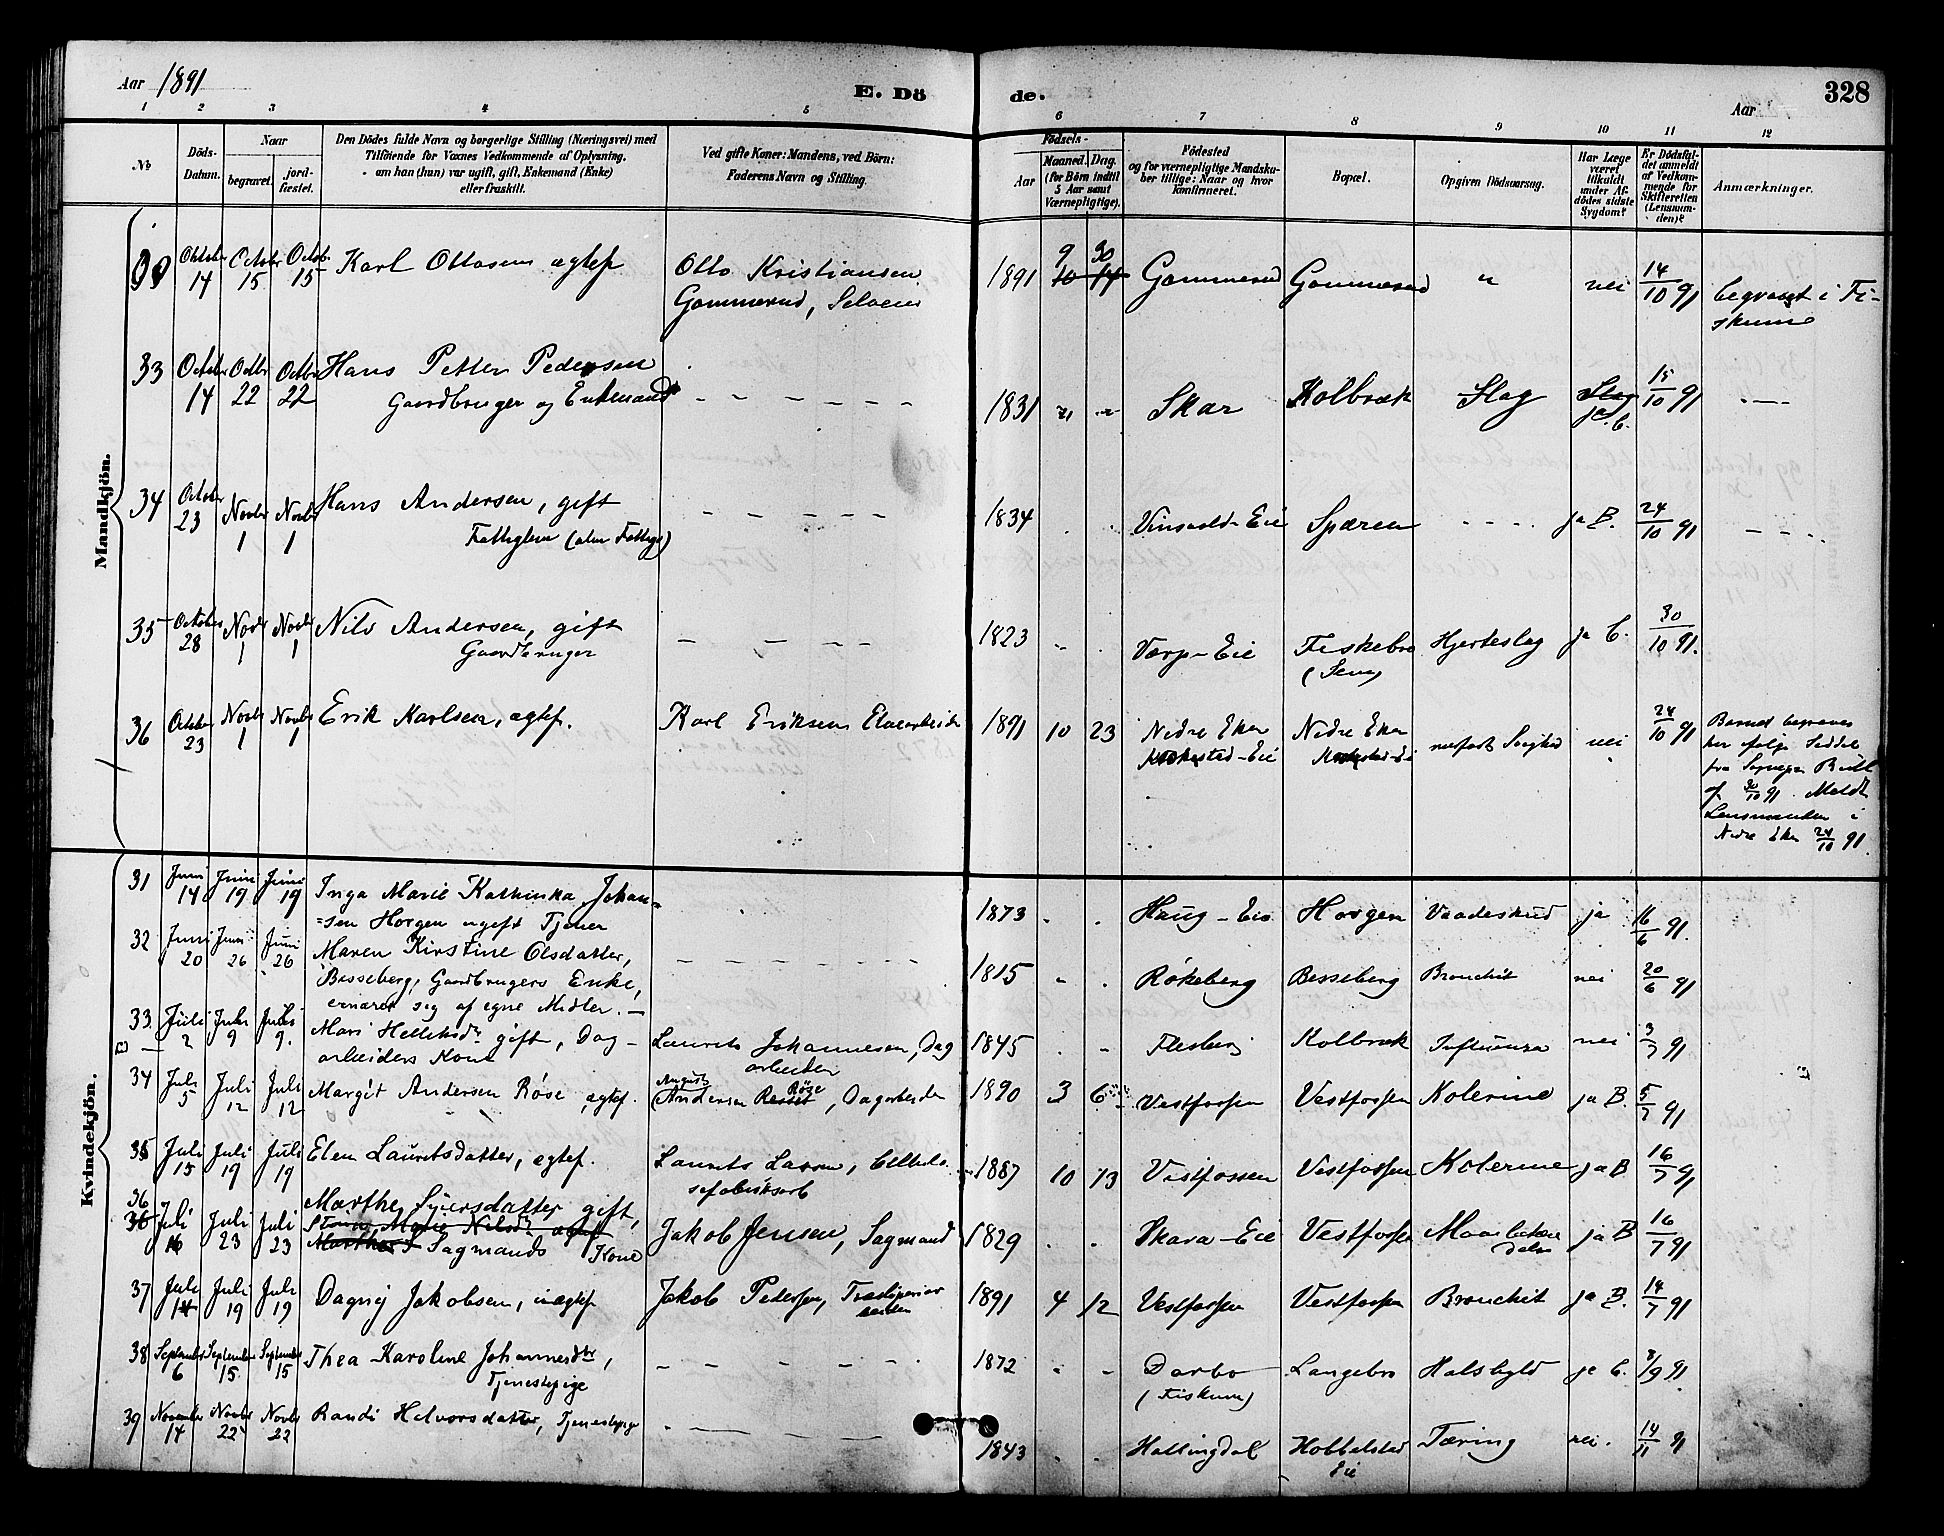 Aar 1891
E. Döde.
Aar
328
1 2 3 4 5 6 7 8 9 10 11 12
No
Döds-Datum.
Naar
begravet.
jordfæstet.
Den Dödes fulde Navn og borgerlige Stilling (Næringsvei) med
Tilföiende for Voxnes Vedkommende af Oplysning,
om han (hun) var ugift, gift, Enkemand (Enke)
eller fraskilt.
Ved gifte Koner: Mandens, ved Börn:
Faderens Navn og Stilling.
Födsels-
Aar
Maaned. Dag.
(for Börn indtil
5 Aar samt
Værnepligtige).
Födested
og for værnepligtige Mandska-
ber tillige: Naar og hvor
konfirmeret.
Bopæl.
Opgiven Dödsaarsag.
Har Læge
været
tilkaldt
under Af-
dödes sidste
Sygdom?
Er Dödsfal-
det anmeldt
af Vedkom-
mende for
Skifteretten
(Lensman-
den)?
Anmærkninger.
Mandkjön.
Oktober 14 Octobr 15 Octob. 15 Karl Ottosen ægtef Otto Kristiansen 1891 9 30 10 14 Gommerud Gommerud " nei 14/10 91 begravet i Fi-
Gommerud, skume
33 October 14 Octbr 22 Octbr 22 Hans Petter Pedersen
Gaardbruger og Enkemand - - - - - - 1831 " " Skar Kolbræk Slag Slag ja C. 15/10 91
34 Octobr 23 Novbr 1 Novbr 1 Hans Andersen, gift - - - - - 1834 Eie Spæren - - - - ja B. 24/10 91
Fattiglem
35 October 28 Novbr 1 Novbr 1 Nils Andersen, gift - - - - 1823 Værp-Eie Fiskebro Hjerteslag ja C. 30/10 91.
Gaardbruger
36 October 23 Novbr 1 Novbr 1 Erik Karlsen, ægtef. Karl Eriksen 1891 10 23 Nedre Eker Nedre Eker nei 24/10 91 Barnet begraves
Krokestad-Eie Krokestad-Eie her ifølge Seddel
fra Sognepr.
af 30/10 91. Meldt
Lensmanden i
Nedre Eker 24/10 91.
Kvindekjön.
31 Juni 14 Juni 19 Juni 19 Inga Marie Kathinka Johan= 1873 Haug-Eie Horgen Vaadeskud ja 16/6 91.
=sen Horgen ugift Tjener
32 Juni 20 Juni 26 Juni 26 Maren Kirstine Olsdatter, - - - - - - 1815 Røkeberg Besseberg Bronchit nei 20/6 91
Besseberg, Gaardbrugers Enke,
ernærer sig af egne Midler. -
33. Juli 2 Juli 9 Juli 9. Mari Helleksdr gift, Dag- Laurits Johannesen, Dag 1845 Flesberg Kolbræk Influenza nei 3/7 91
arbeiders Kone arbeider
B
34 Juli 5 Juli 12 Juli 12 Margit Andersen Röse ægtef. August Andersen Röse, Dagarbeider 1890 3 6 Vestfossen Vestfossen Kolerine ja B. 5/7 91
35 Juli 15 Juli 19 Juli 19 Elen Lauritsdatter, ægtef. Laurits Larsen, Cellulo- 1887 10 13 Vestfossen Vestfossen Kolerine ja B 16/7 91
sefabriksarb
36 Juli 16 Juli 23 Juli 23 Marthe Syversdatter gift, Jakob Jensen, Sagmand 1829 Skara-Eie Vestfossen ja B 16/7 91
Sagmands Kone
37 Juli 14 Juli 19 Juli 19 Dagny Jakobsen, uægtef Jakob Pedersen, 1891 4 12 Vestfossen Vestfossen Bronchit ja B. 14/7 91
38 September 6 September 15. September 15 Thea Karoline Johannesdtr, - - - - - 1872 Darbo Langebro Halsbyld ja C. 8/9 91.
Tjenestepige (Fiskum)
39 November 14 Novbr 22 Novbr 22 Randi Halvorsdatter, Tjenestepige 1843 Hallingdal Hobbelstad Tæring nei. 14/11 91
Eie